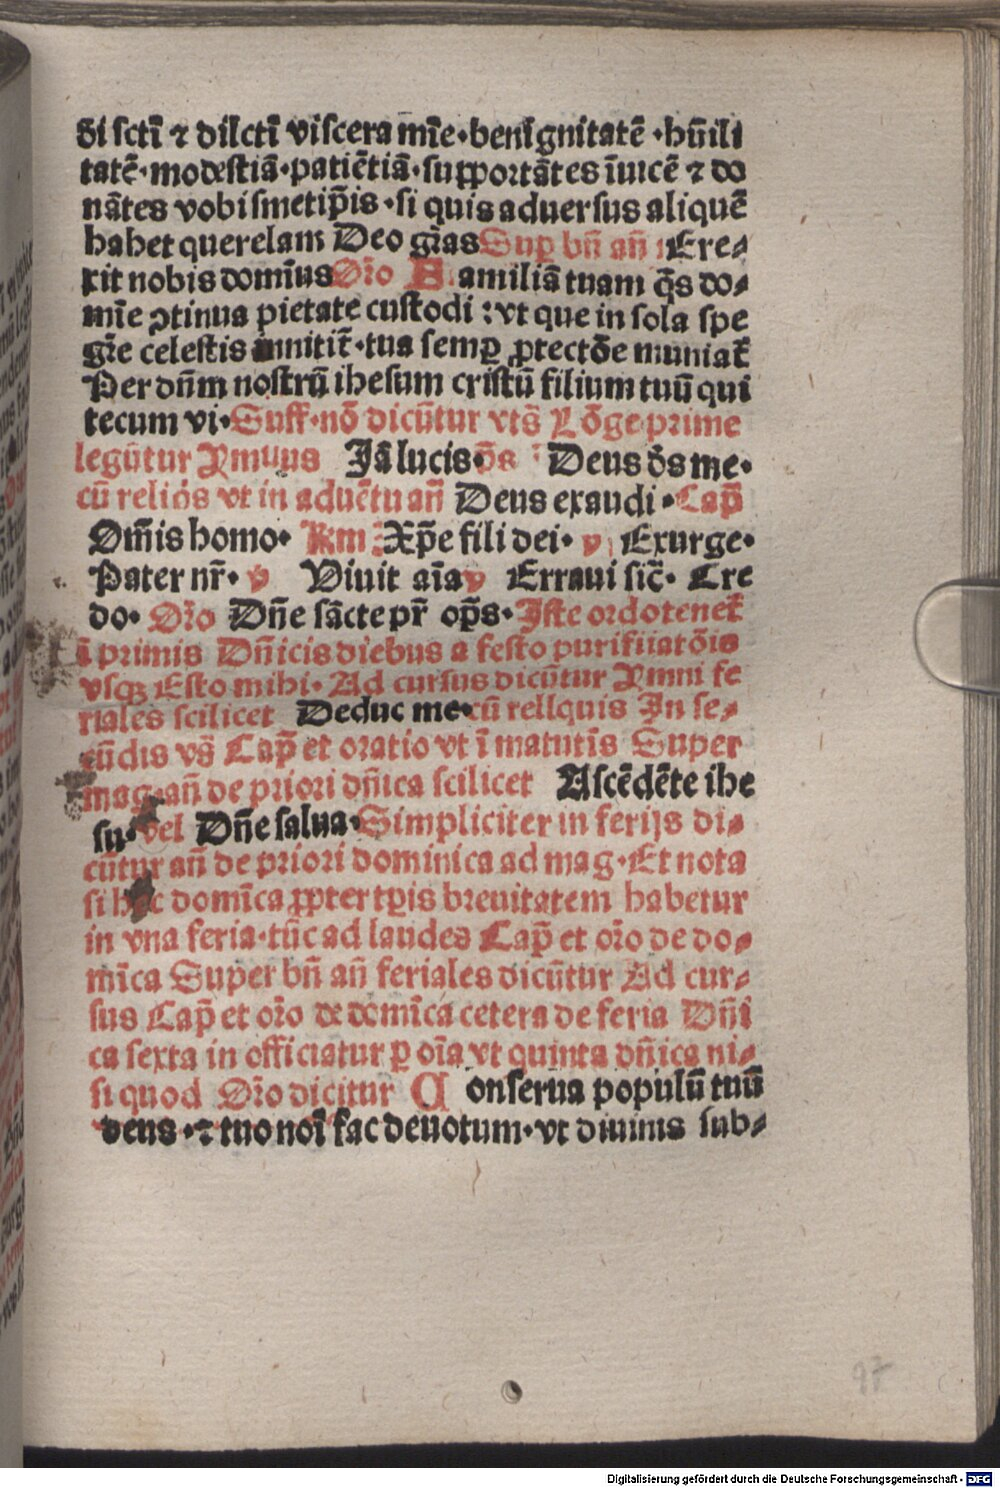 di scti ⁊ dilcti viscera mīe·benignitatē·hūili
tatē·modestiā·patiētiā·supportātes īuicē ⁊ do
nātes vobismetip̄is·si quis aduersus aliquē
habet querelam Deo gr̄as Sup bn̄ an̄ Ere⸗
xit nobis domīus Oīo Familiā tuam q̄s do⸗
mīe ꝯtinua pietate custodi : vt que in sola spe
gr̄e celestis innitit᷑·tua semꝑ ꝓtectōe muniat᷑
Per dn̄m nostrū ihesum cristū filium tuū qui
tecum vi·Suff·nō dicūtur vts̄ Lōge prime
legūtur Ymnus Jā lucis·ōs Deus ōs me·
cū reliq̄s vt in aduētu an̄ Deus exaudi·Cap̄
Om̄is homo· Rm Xp̄e fili dei· v Exurge·
Pater nr̄· v Viuit aīa v Erraui sic̄· Cre
do· Oīo Dn̄e sācte pr̄ op̄s·Iste ordo tenet᷑
ī primis Dn̄icis diebus a festo purificatōis
vsqꝫ Esto mihi· Ad cursus dicūtur Ymni fe
riales scilicet Deduc me·cū reliquis In se⸗
cūdis vs̄ Cap̄ et oratio vt ī matutīs Super
mag·an̄ de priori dn̄ica scilicet Ascēdēte ihe
su·vel Dn̄e salua·Simpliciter in ferijs di⸗
cūtur an̄ de priori dominica ad mag·Et nota
si hec domīca ꝓpter tp̄is breuitatem habetur
in vna feria·tūc ad laudes Cap̄ et oīo de do⸗
mīca Super bn̄ an̄ feriales dicūtur Ad cur⸗
sus Cap̄ et oīo de domīca cetera de feria Dn̄i
ca sexta in officiatur ꝑ oīa vt quinta dn̄ica ni⸗
si quod Oīo dicitur Conserua populū tuū
deus·⁊ tuo noī fac deuotum·vt diuinis sub⸗
97
Digitalisierung gefördert durch die Deutsche Forschungsgemeinschaft - DFG